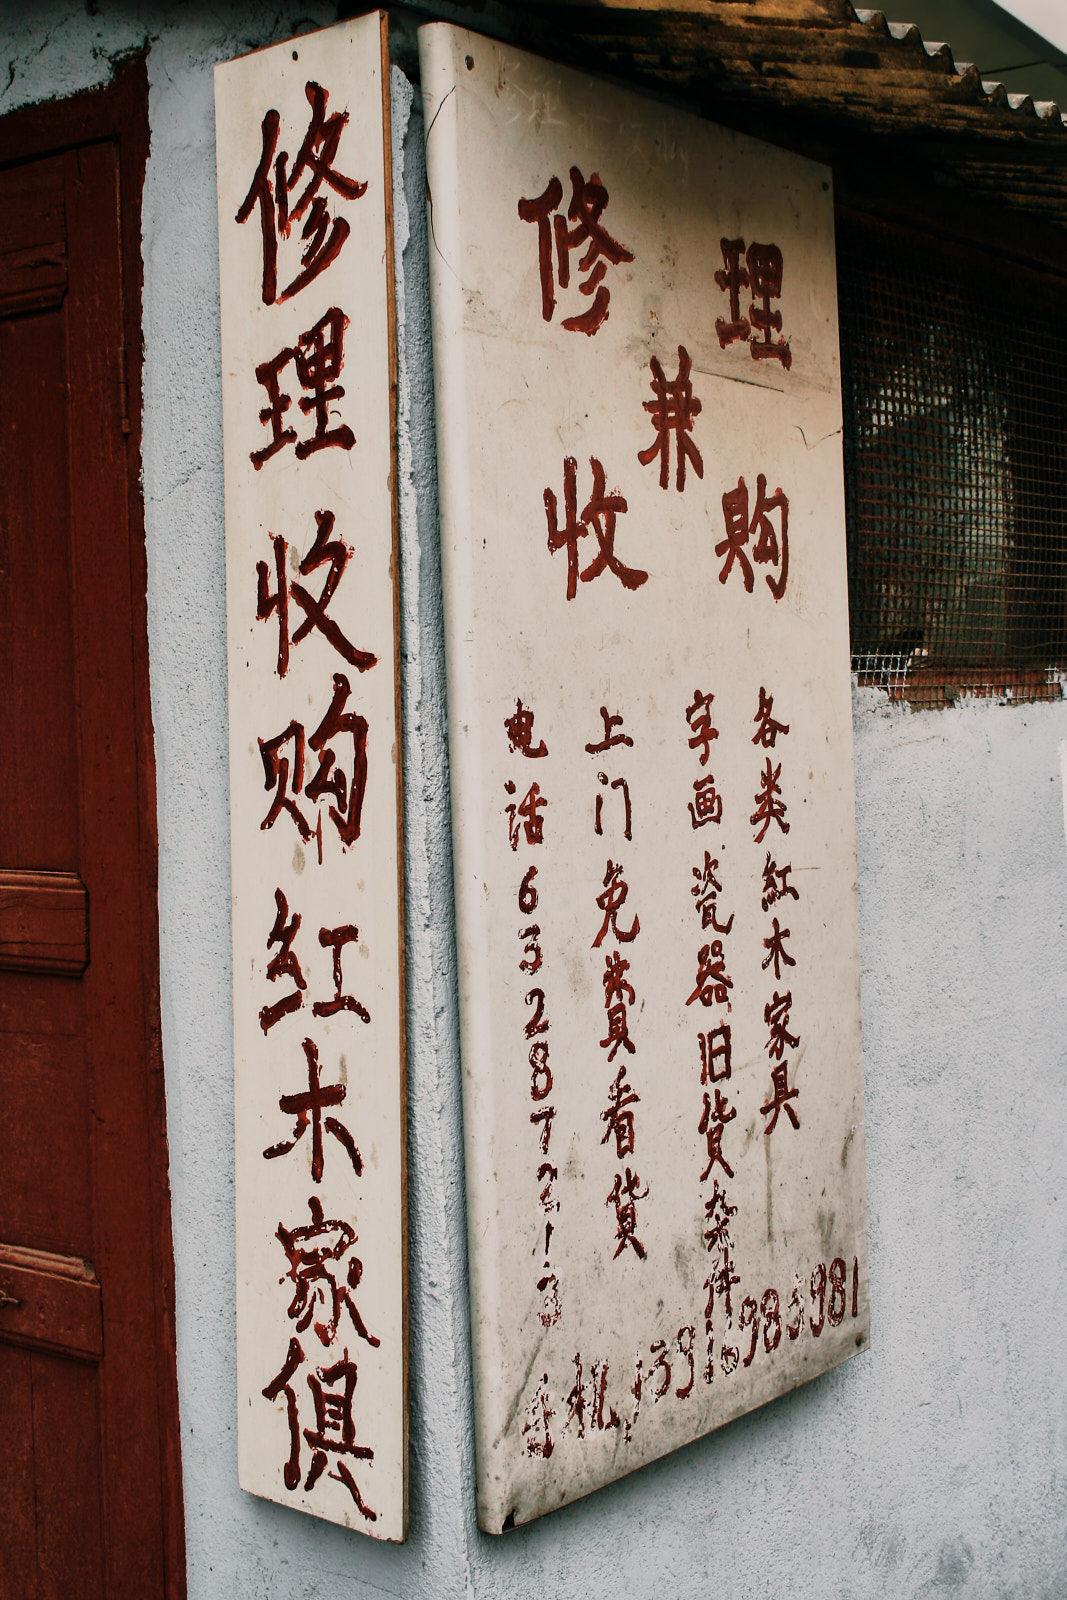 修理收购红木家俱
修理
兼
收购
各类紅木家具
字画瓷器旧貨杂件
上门免費看貨
电话63287213
手机13916983981